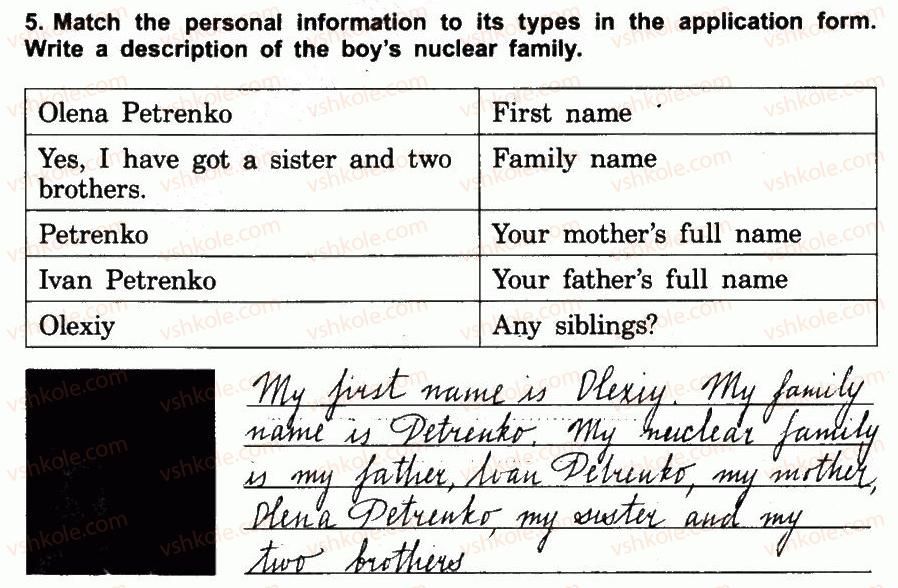 5. Match the personal information to its types in the application form.
Write a description of the boy's nuclear family.
Olena Petrenko
First name
Yes, I have got a sister and two
brothers.
Family name
Petrenko
Your mother's full name
Ivan Petrenko
Your father's full name
Olexiy
Any siblings?
My first name is Olexiy. My family
name is Petrenko. My nuclear family
is my father, Ivan Petrenko, my mother,
Olena Petrenko, my sister and my
two brothers
vshkole.com